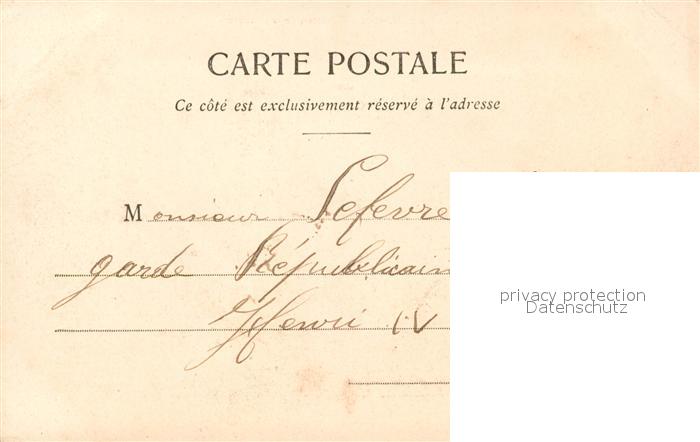 CARTE POSTALE
Ce côté est exclusivement réservé à l'adresse
Monsieur Lefevre
garde Républicain
Henri IV
privacy protection
Datenschutz